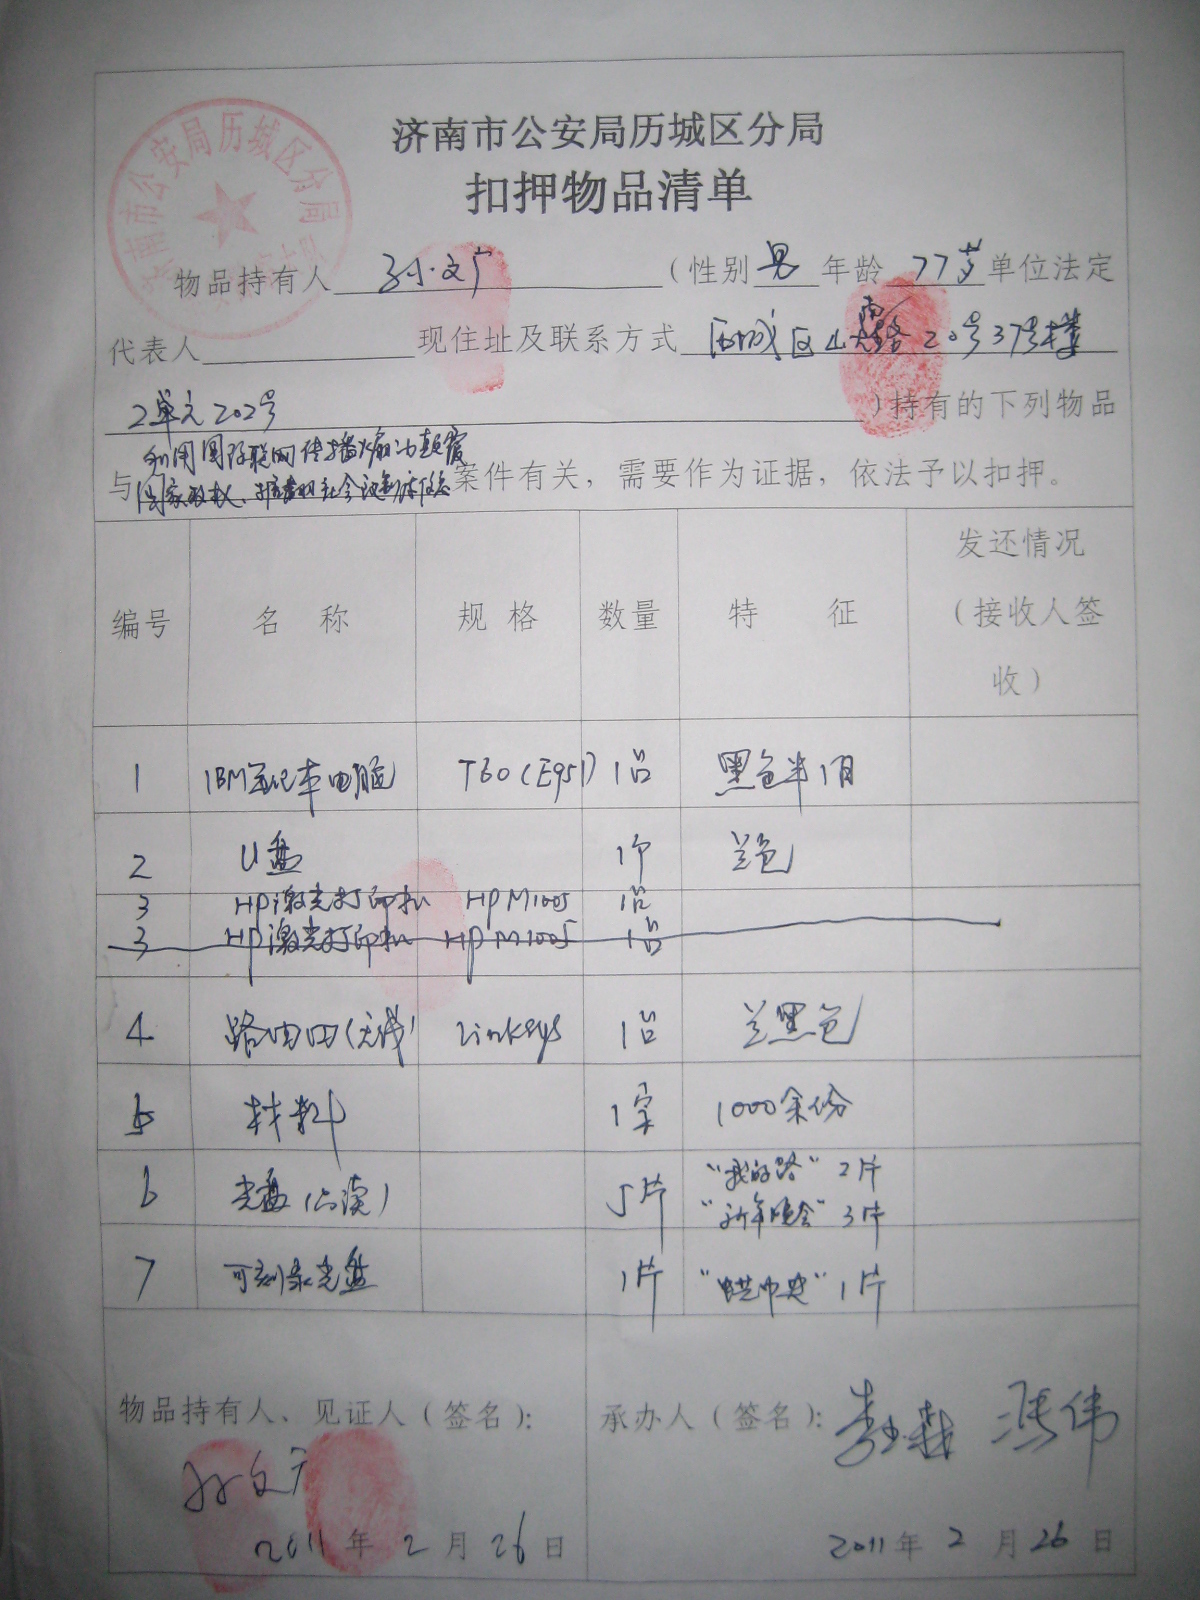 济南市公安局历城区分局
济南市公安局历城区分局
扣押物品清单
物品持有人 孙文广 (性别 男 年龄 77岁 单位法定
代表人 现住址及联系方式 历城区山大南路20号37号楼
2单元202号 )持有的下列物品
利用国际联网传播煽动颠覆
与 国家政权、 案件有关，需要作为证据，依法予以扣押。
编号 名 称 规 格 数量 特 征 发还情况
（接收人签
收）
1 IBM笔记本电脑 T60(E951) 1台 黑色半旧
2 U盘 1个 兰色
3 HP激光打印机 HP M1005 1台
3 HP激光打印机 HP M1005 1台
4 路由四(无线) Linksys 1台 兰黑色
5 材料 1宗 1000余份
6 光盘(只读) 5片 "我的路" 2片
"新年晚会" 3片
7 可刻录光盘 1片 1片
物品持有人、见证人（签名）: 承办人（签名）:
孙文广 冯伟
2011年2月26日 2011年2月26日